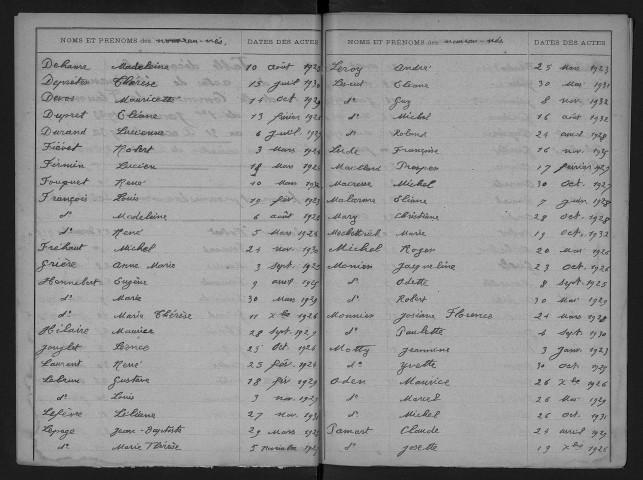 NOMS ET PRÉNOMS des nouveau-nés. DATES DES ACTES
Dehaure Madeleine 10 août 1925
Depretz Thérèse 15 juil 1930
Devos Mauricette 14 oct. 1929
Dupret Eliane 13 février
Durand Lucienne 6 juil. 1929
Fiévet Robert 3 mars
Firmin Lucien 18 mars
Fouquet René 10 mars
François Louis 19 fév.
d° Madeleine 6 août
d° René 5 mars 1926
Fréhaut Michel 24 nov. 1930
Grière Anne Marie 3 sept.
Hennebert Eugène 9 août
d° Marie 30 mars 1929
d° Marie Thérèse 11 xbre 1926
Hilaire Maurice 28 sept. 1929
Jouglet Léonce 25 oct 1926
Laurent René 25 fév.
Lebrun Gustave 18 fév 1929
d° Louis 3 nov.
Lefèvre Liliane 27 nov. 1931
Lepage Jean-Baptiste 29 mars
d° Marie Thérèse 5 novembre
NOMS ET PRÉNOMS des nouveau-nés DATES DES ACTES
Leroy André 25 mars 1923
Eliane 30 mai 1931
d° Guy 8 nov. 1932
d° Michel 16 août 1932
d° Roland 24 août 1928
Françoise 16 nov.
Maillard 17 février 1927
Michel 30 oct. 1927
Eliane 7 juin 1928
Mary Christiane 28 oct 1928
Marie 19 oct. 1932
Michel Roger 20 mai 1926
Monier Jacqueline 23 oct 1926
d° Odette 8 sept 1925
d° Robert 30 mai 1929
Monnier Josiane Florence 24 mars 1928
d° Paulette 4 sept 1930
Motty Jeannine 3 janv. 1923
d° Yvette 30 oct
Oden Maurice 26 xbre 1926
d° Marcel 26 mai 1929
d° Michel 26 oct. 1931
Pamart Claude 24 avril 1929
d° Josette 19 xbre